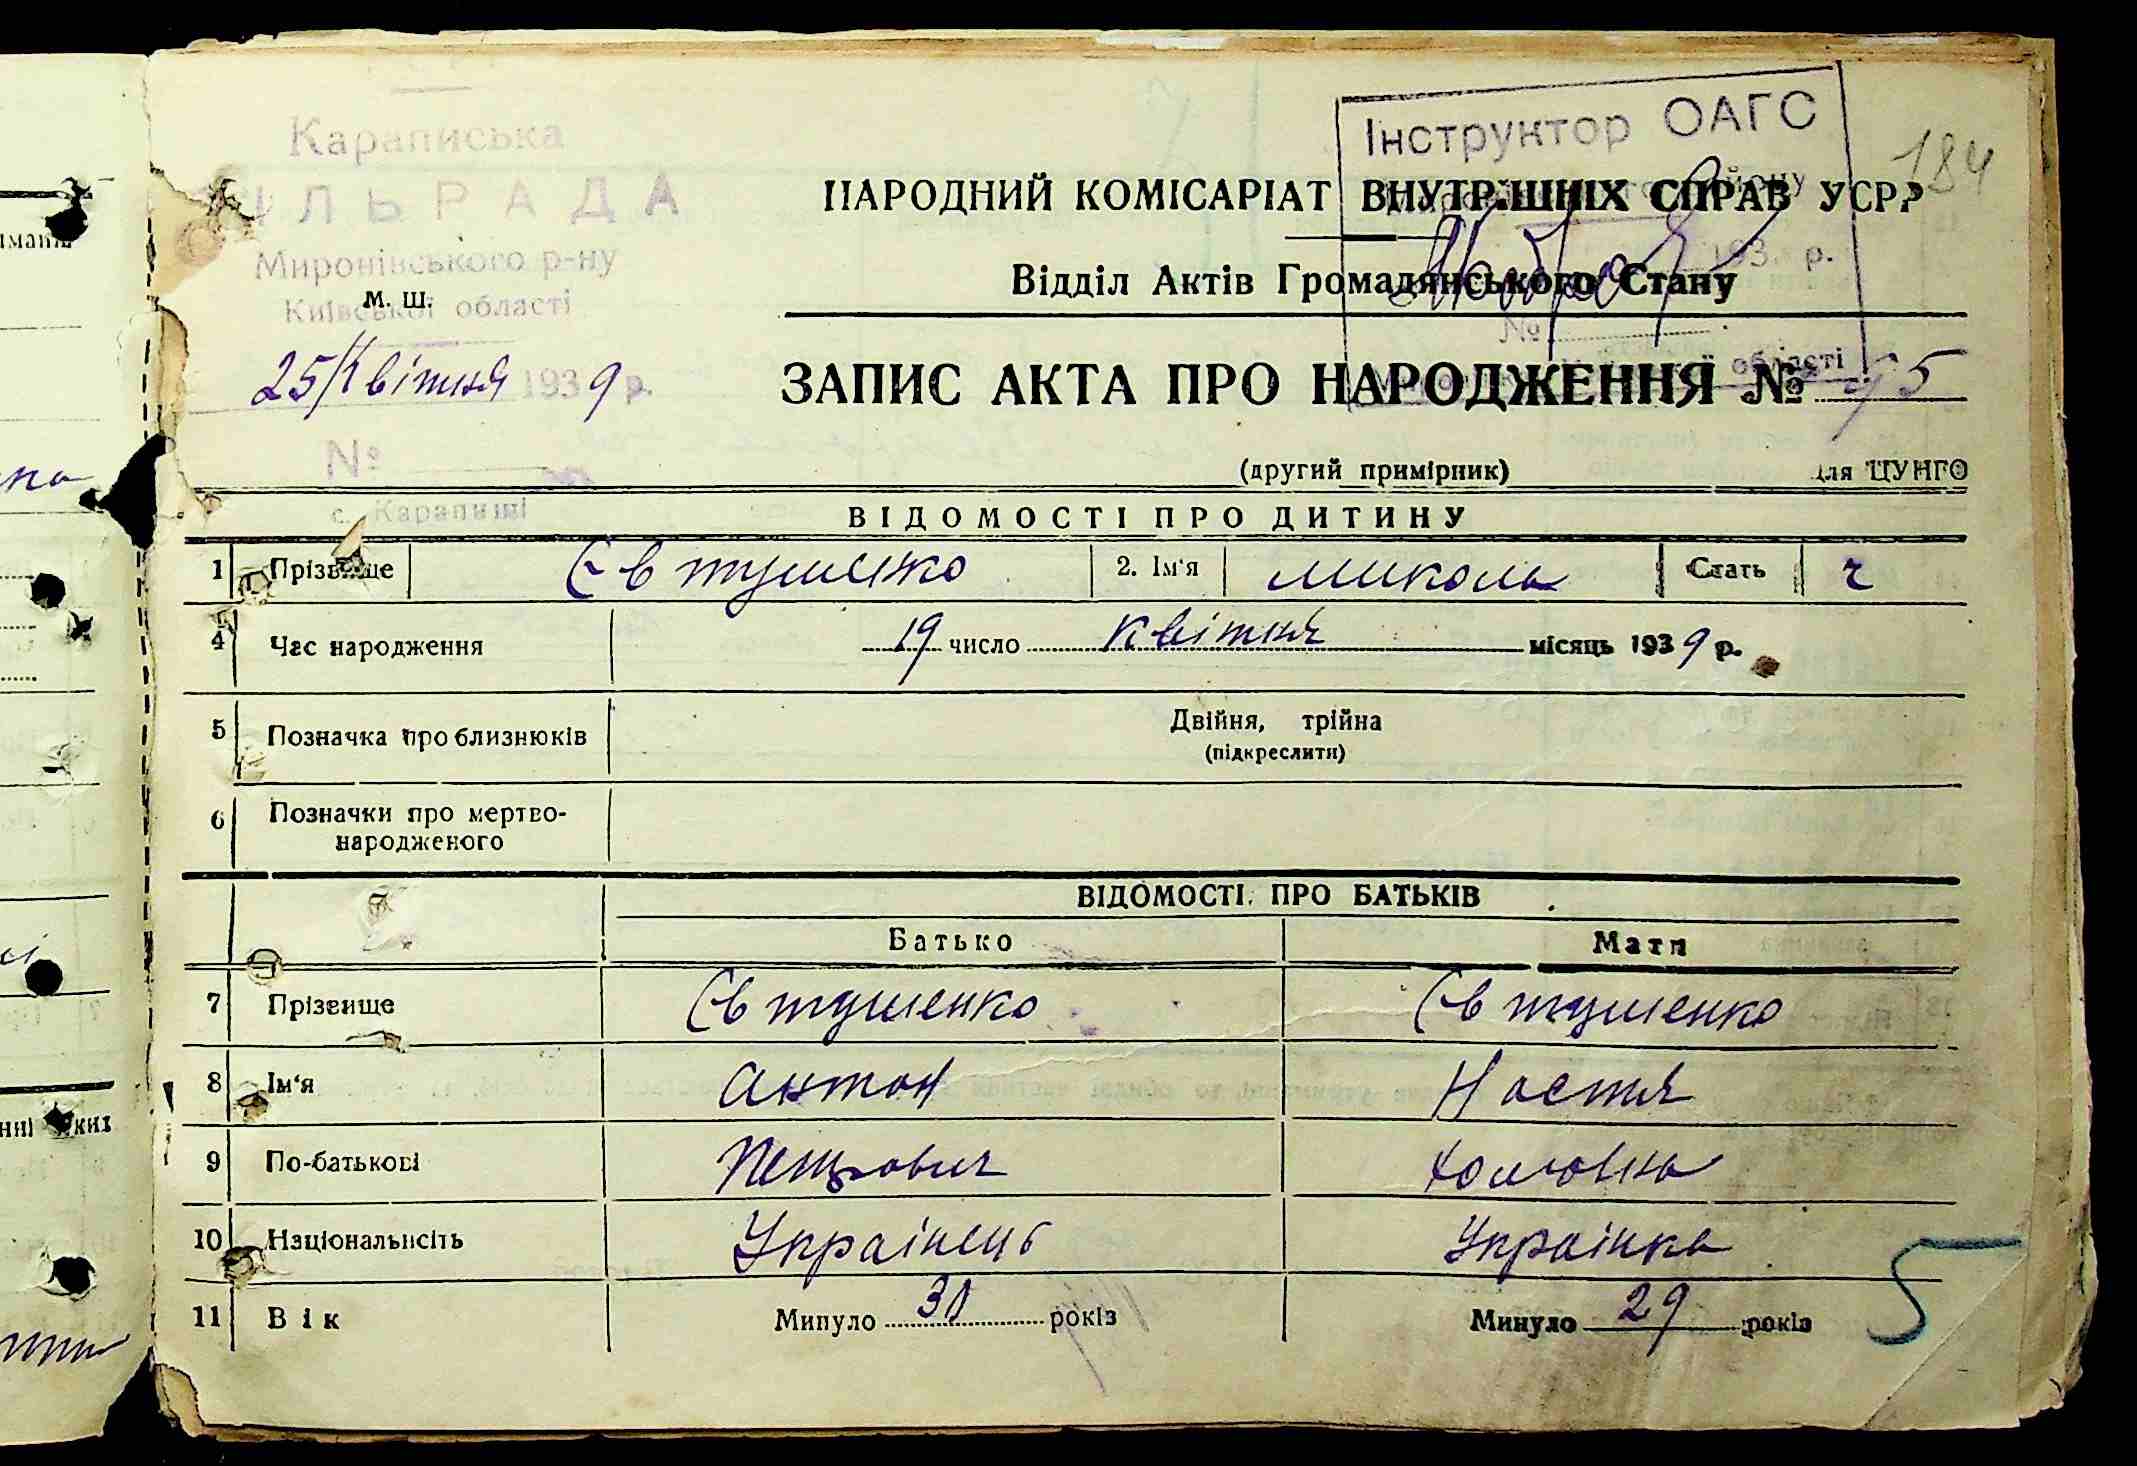 Караписька
СІЛЬРАДА
Миронівського р-ну
Київської області
М. Ш.
25/Квітня 1939 р.
№
с. Карапиші
Інструктор ОАГС
району
193 р.
№
області
184
НАРОДНИЙ КОМІСАРІАТ ВНУТРІШНІХ СПРАВ УСРР
Відділ Актів Громадянського Стану
ЗАПИС АКТА ПРО НАРОДЖЕННЯ № 55
(другий примірник) Для ЦУНГО
ВІДОМОСТІ ПРО ДИТИНУ
1 Прізвище Євтушенко 2. Ім'я Микола Стать ч
4 Час народження 19 число квітня місяць 1939 р.
5 Позначка про близнюків Двійня, трійна
(підкреслити)
6 Позначки про мертво-
народженого
ВІДОМОСТІ ПРО БАТЬКІВ
Батько Мати
7 Прізвище Євтушенко Євтушенко
8 Ім'я Антон Настя
9 По-батькові Петрович
10 Національність Українець Українка
11 Вік Минуло 30 років Минуло 29 років
5